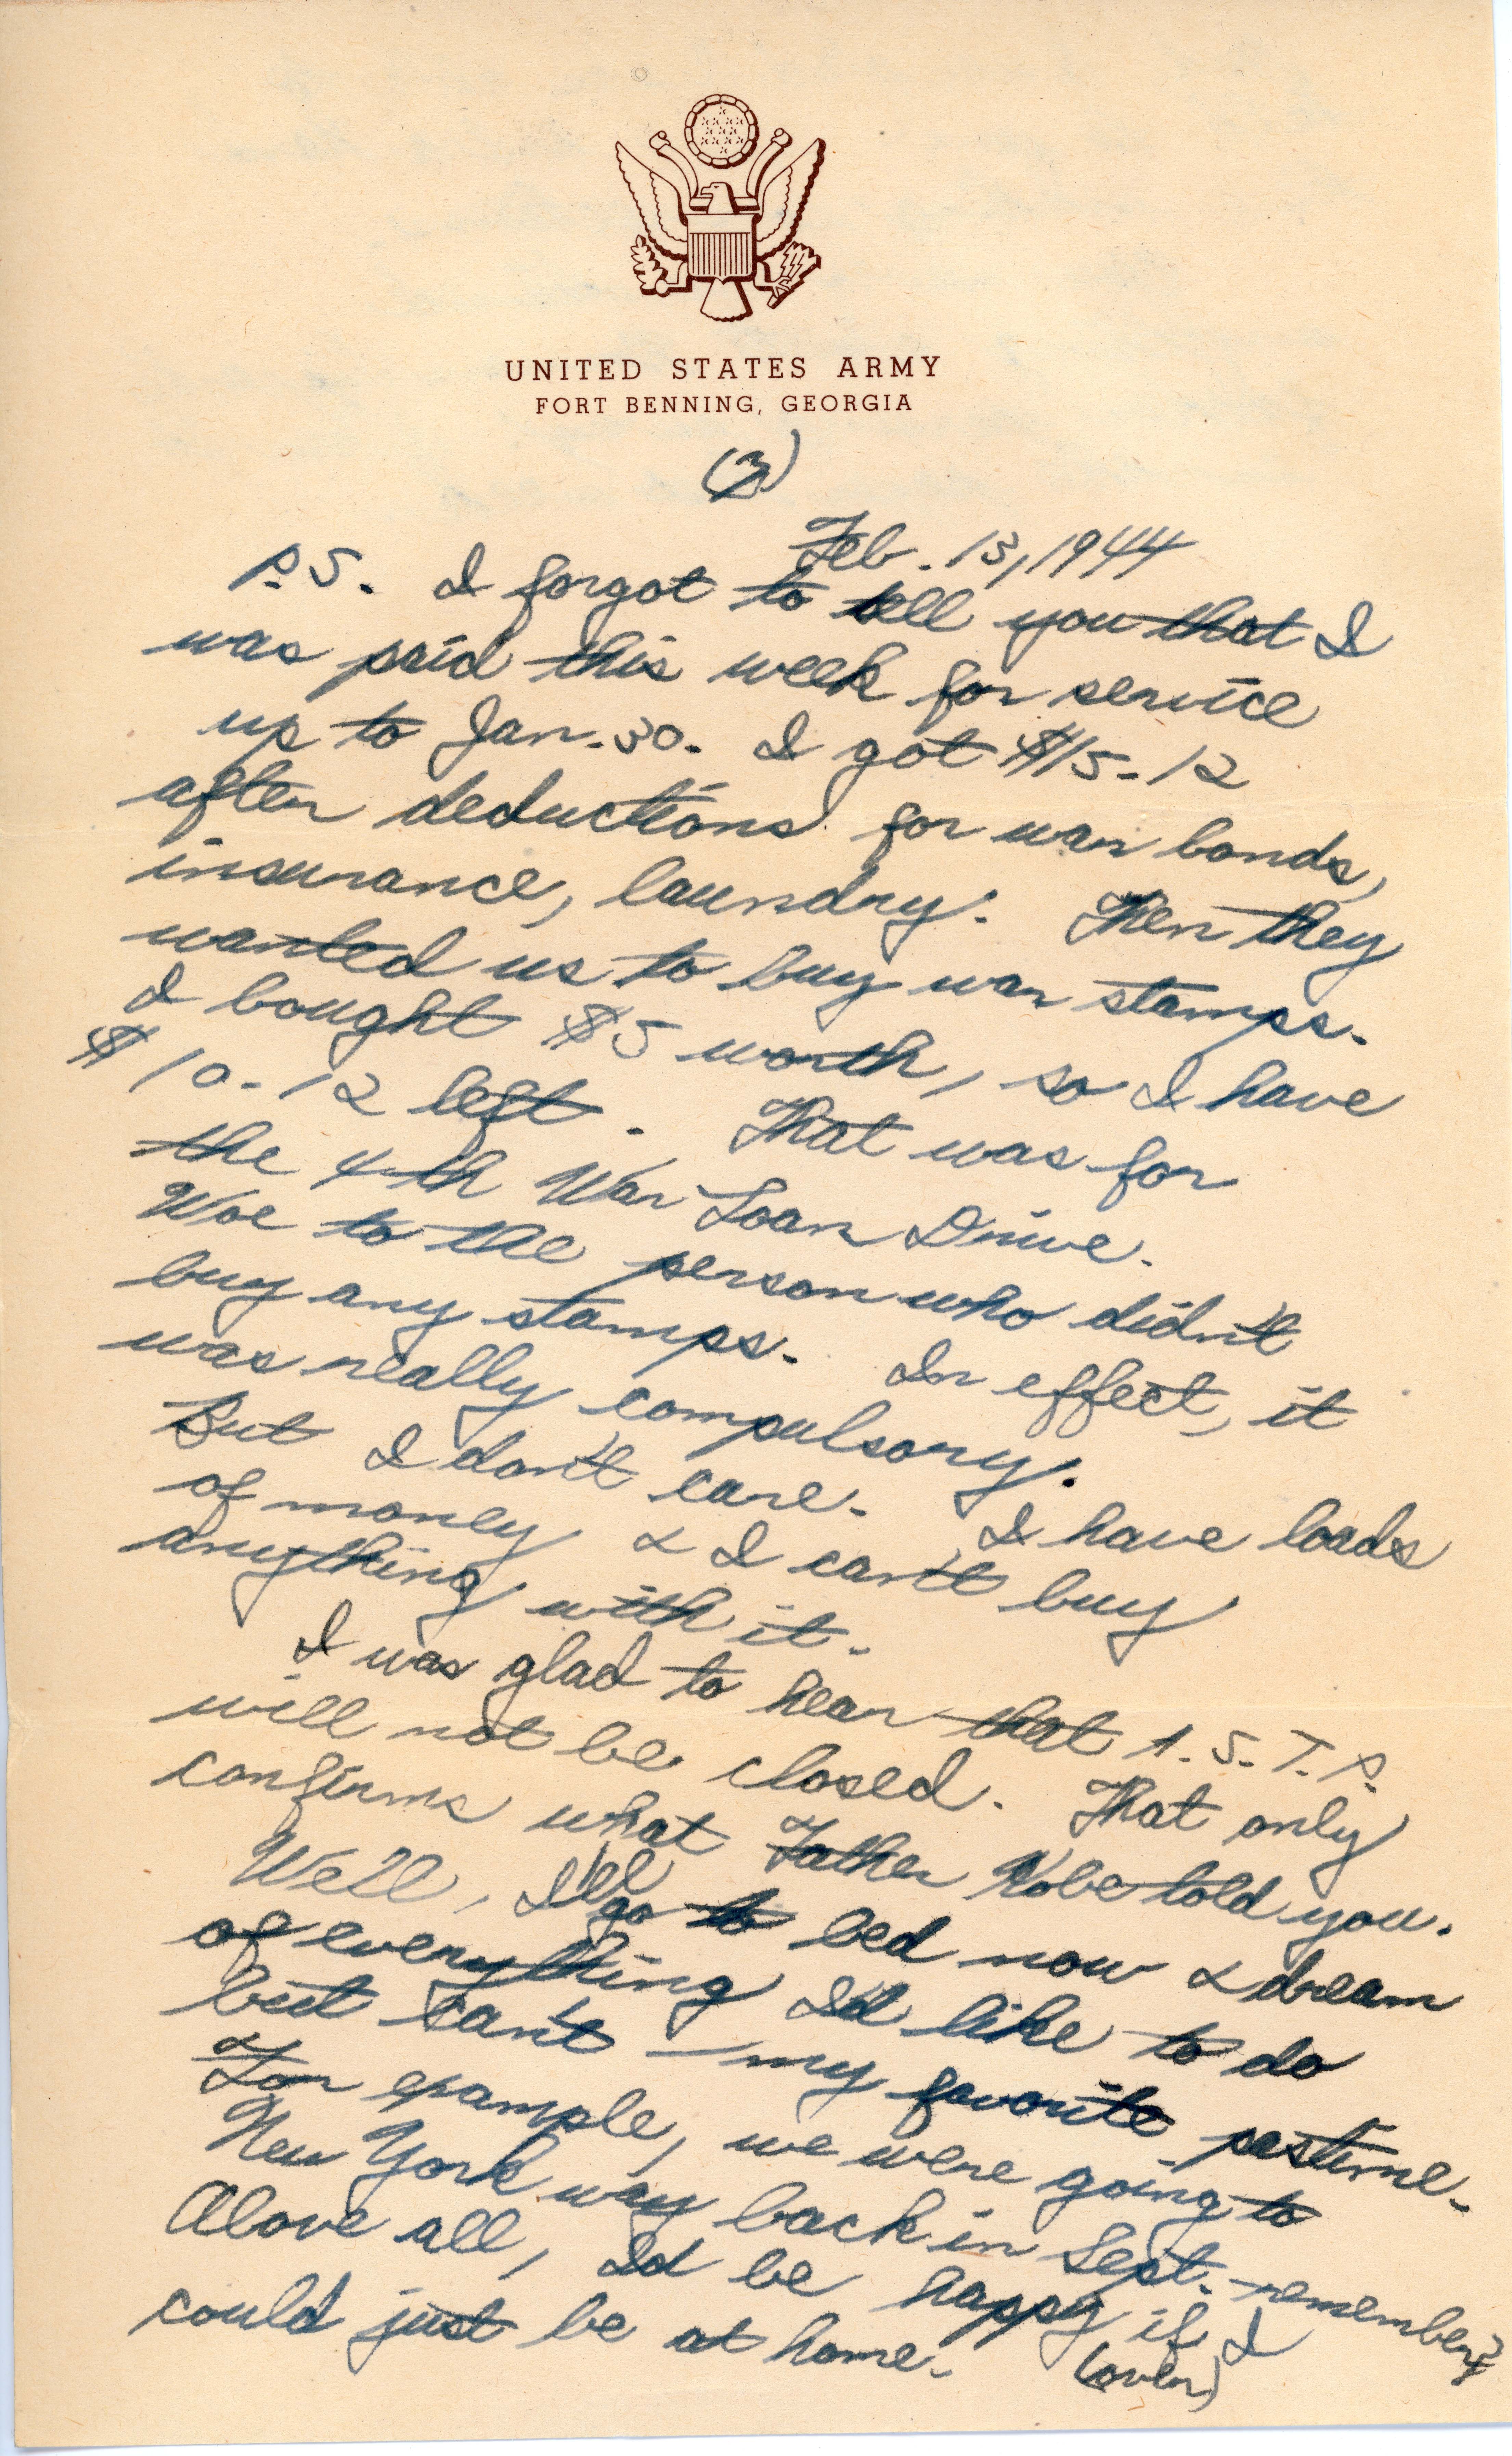 UNITED STATES ARMY
FORT BENNING, GEORGIA
(3)
Feb. 13, 1944
P.S. I forgot to tell you that I
was paid this week for service
up to Jan. 30. I got $15.12
after deductions for war bonds,
insurance, laundry. Then they
wanted us to buy war stamps.
I bought $5 worth, so I have
$10.12 left. That was for
the 4th War Loan Drive.
Woe to the person who didn't
buy any stamps. In effect, it
was really compulsory.
But I don't care. I have loads
of money & I can't buy
anything with it.
I was glad to hear that A.S.T.P.
will not be closed. That only
confirms what Father Kobe told you.
Well, I'll go to bed now & dream
of everything I'd like to do
but can't – my favorite pastime.
For example, we were going to
New York way back in Sept. – remember?
Above all, I'd be happy if I
could just be at home.
(over)